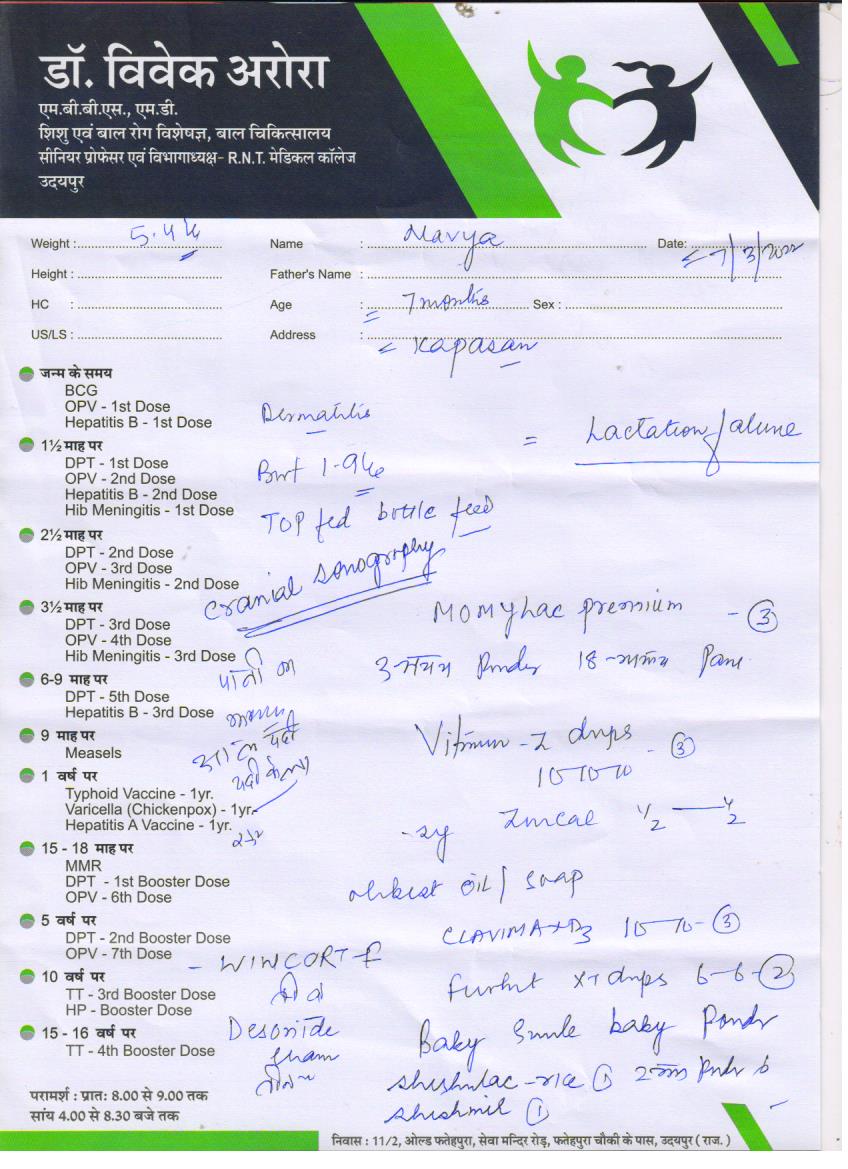 डॉ. विवेक अरोरा
एम.बी.बी.एस., एम.डी.
शिशु एवं बाल रोग विशेषज्ञ, बाल चिकित्सालय
सीनियर प्रोफेसर एवं विभागाध्यक्ष- R.N.T. मेडिकल कॉलेज
उदयपुर
Weight : 5.4 Name : Navya Date: 7/3/2022
Height : Father's Name :
HC : Age : 7 months Sex :
US/LS : Address : Kapasan
जन्म के समय
BCG
OPV - 1st Dose Dermatitis
Hepatitis B - 1st Dose
= Lactation/alune
1½ माह पर
DPT - 1st Dose
OPV - 2nd Dose Bwt 1.9
Hepatitis B - 2nd Dose
Hib Meningitis - 1st Dose TOP fed bottle feed
2½ माह पर
DPT - 2nd Dose
OPV - 3rd Dose
Hib Meningitis - 2nd Dose cranial sonography
3½ माह पर MOMYLAC premium - 3
DPT - 3rd Dose
OPV - 4th Dose
Hib Meningitis - 3rd Dose
6-9 माह पर पानी 18
DPT - 5th Dose
Hepatitis B - 3rd Dose
9 माह पर drops - 3
Measels
1 वर्ष पर 10 10
Typhoid Vaccine - 1yr.
Varicella (Chickenpox) - 1yr.
Hepatitis A Vaccine - 1yr. sy Zincal ½ — ½
15 - 18 माह पर
MMR
DPT - 1st Booster Dose OIL / soap
OPV - 6th Dose
5 वर्ष पर
DPT - 2nd Booster Dose CLAVIMAX D3 10 10 - 3
OPV - 7th Dose - WINCORT F
10 वर्ष पर XT drops 6-6- 2
TT - 3rd Booster Dose
HP - Booster Dose
15 - 16 वर्ष पर Desonide Baby Smile baby
TT - 4th Booster Dose
परामर्श : प्रात: 8.00 से 9.00 तक Shishulac - rice 1
सांय 4.00 से 8.30 बजे तक Shishmil 1
निवास : 11/2, ओल्ड फतेहपुरा, सेवा मन्दिर रोड़, फतेहपुरा चौकी के पास, उदयपुर ( राज. )